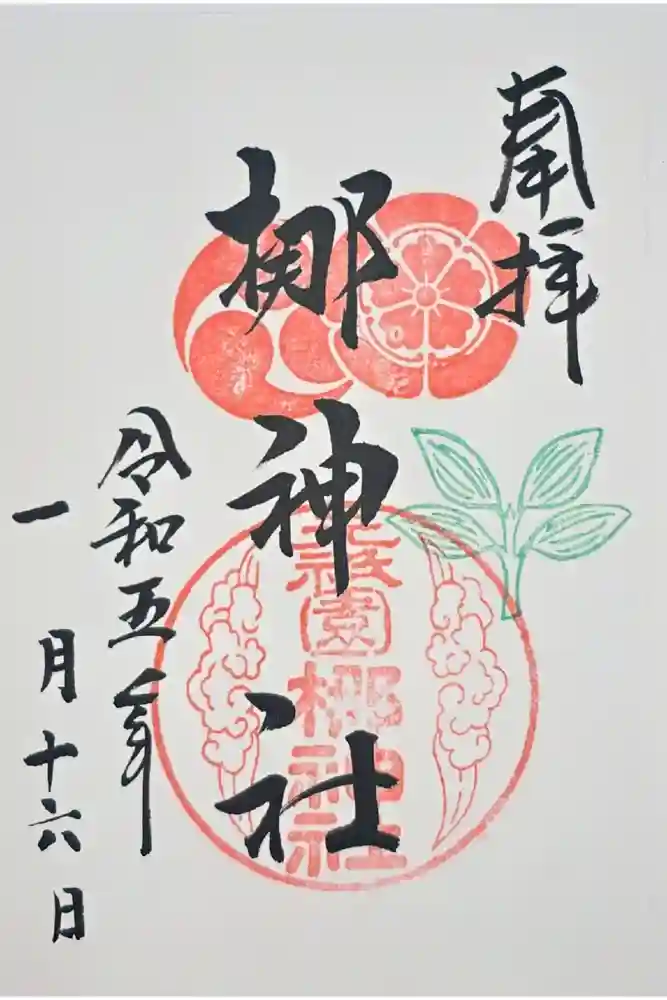 奉拝
梛神社
元祇園梛神社
令和五年
一月十六日